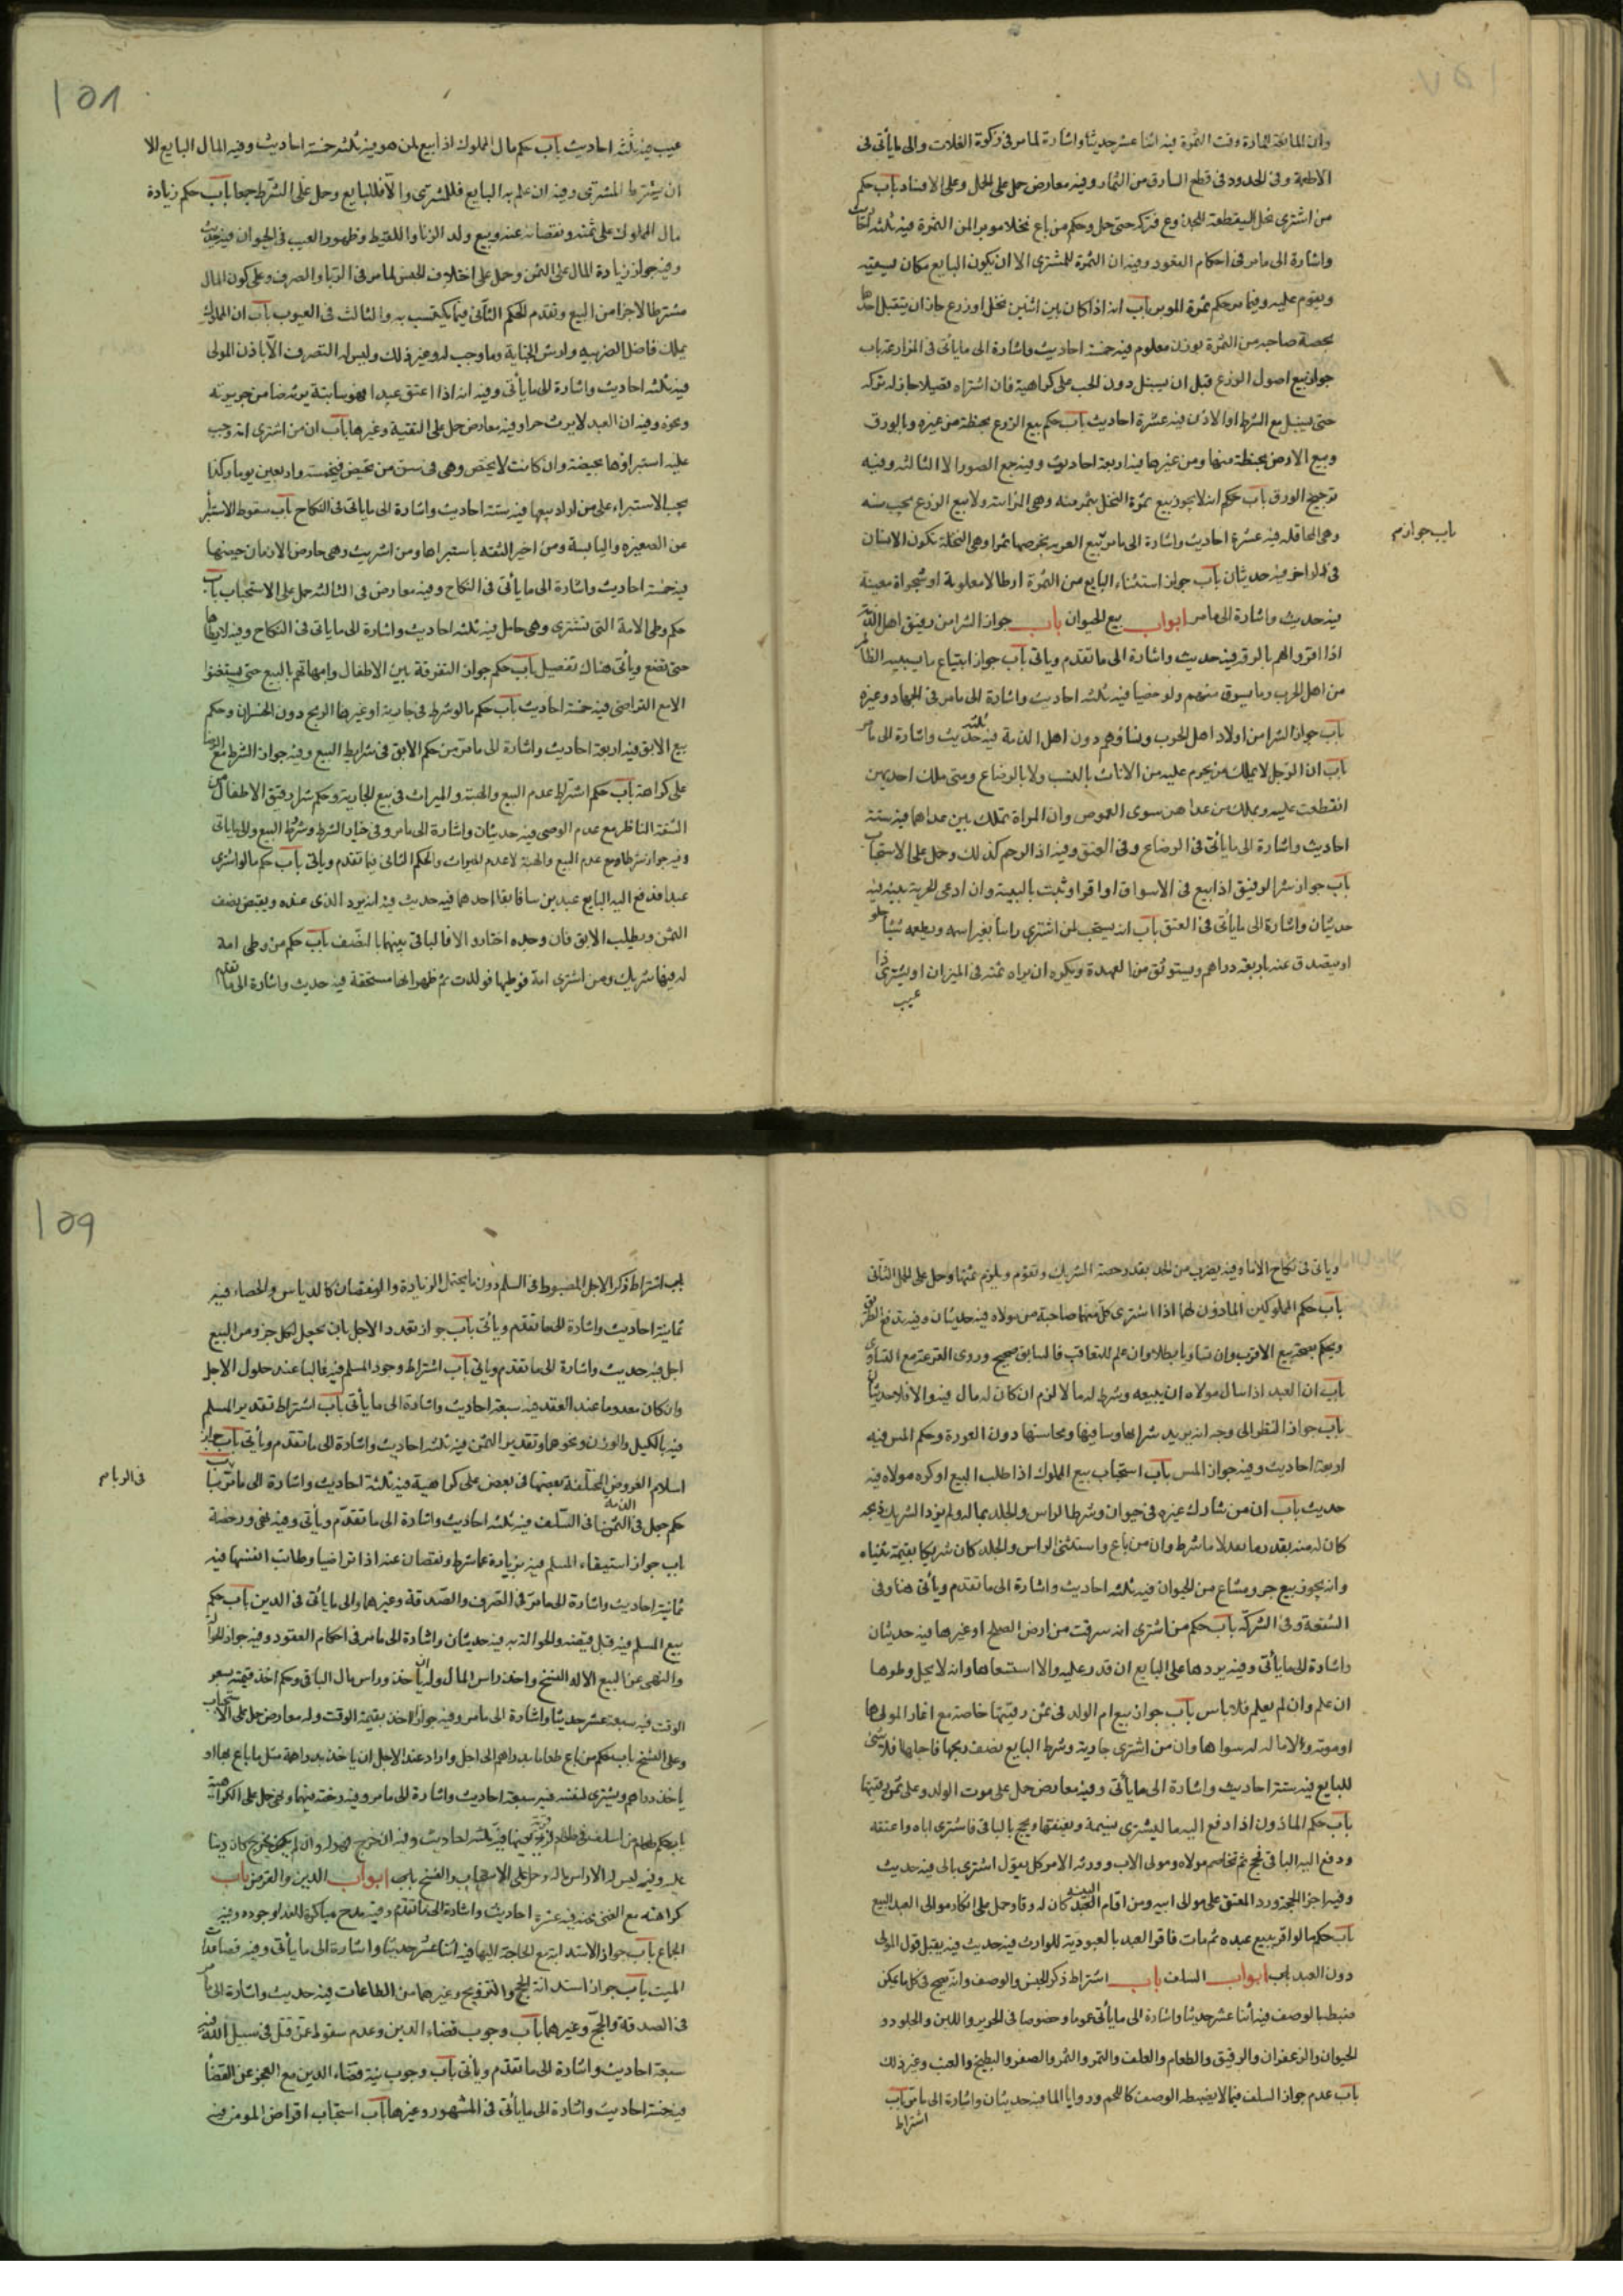 وان المانعة المادة وقت الثمرة فيه اثنا عشر حديثا واشارة لما مر فى زكوة الغلات والى ما يأتى فى
الاطعمة وفى الحدود فى قطع السارق من الثمار وفيه معارض حمل على الحمل وعلى الافساد باب حكم
من اشترى نخلا ليقطعه للجذوع فتركه حتى حمل وحكم من باع نخلا موبرا لمن الثمرة فيه ثلثة احاديث
واشارة الى ما مر فى احكام العقود وفيه ان الثمرة للمشترى الا ان يكون البايع كان يسقيه
ويقوم عليه وفيما مر حكم ثمرة الموبر باب انه اذا كان بين اثنين نخل او زرع جاز ان يتقبل احدهما
بحصة صاحبه من الثمرة بوزن معلوم فيه خمسة احاديث واشارة الى ما يأتى فى المزارعة باب
جواز بيع اصول الزرع قبل ان يسنبل دون الحب على كراهية فان اشتراه قصيلا جاز له تركه
حتى يسنبل مع الشرط او الاذن فيه عشرة احاديث باب حكم بيع الزرع بحنطة من غيره وبالورق
وبيع الارض بحنطة منها ومن غيرها فيه اربعة احاديث وفيه جمع الصور الا الثالثة وفيه
ترجيح الورق باب حكم انه لا يجوز بيع ثمرة النخل بثمر منه وهى المزابنة ولا بيع الزرع بحب منه
وهى المحاقلة فيه عشرة احاديث واشارة الى ما مر بيع العرية بخرصها تمرا وهى النخلة تكون لانسان
باب جواز
فى دار اخر فيه حديثان باب جواز استثناء البايع من الثمرة ارطالا معلومة او شجراة معينة
فيه حديث واشارة الى ما مر ابواب بيع الحيوان باب جواز الشرا من رقيق اهل الذمة
اذا اقروا لهم بالرق فيه حديث واشارة الى ما تقدم وياتى باب جواز ابتياع ما يسبيه الظالم
من اهل الحرب وما يسوق منهم ولو خصيا فيه ثلثة احاديث واشارة الى ما مر فى الجهاد وغيره
باب جواز الشرا من اولاد اهل الحرب ونساؤهم دون اهل الذمة فيه ثلثة حديث واشارة الى ما مر
باب ان الرجل لا يملك من يحرم عليه من الاناث بالنسب ولا بالرضاع ومتى ملك احديهن
انقطعت عليه ويملك من عداهن سوى العمودين وان المراة تملك من عداهما فيه ستة
احاديث واشارة الى ما يأتى فى الرضاع وفى العتق وفيه اذ الرحم كذلك وحمل على الاستحباب
باب جواز شرا الرقيق اذا بيع فى الاسواق او اقر او ثبت بالبينة وان ادعى الحرية بغير بينة
حديثان واشارة الى ما يأتى فى العتق باب انه يستحب لمن اشترى راسا يغير اسمه ويطعمه شيئا حلو
او يتصدق عنه باربعة دراهم ويستوثق من العهدة ويكره ان يراه ثمنه فى الميزان او يشترى ذا
عيب
١٥٨
عيب فيه ثلثة احاديث باب حكم مال المملوك اذا بيع لمن هو فيه ثلثه خمسة احاديث وفيه المال البايع الا
ان يشترط المشترى وفيه ان علم به البايع فللمشترى والا فللبايع وحمل على الشرط جمعا باب حكم زيادة
مال المملوك على ثمنه ونقصانه عنه وبيع ولد الزنا واللقيط وظهور العيب فى الحيوان فيه حديث
وفيه جواز زيادة المال على الثمن وحمل على اختلاف الجنس لما مر فى الربا والصرف وعلى كون المال
مشترطا لاجزا من البيع وتقدم الحكم الثانى فيما يكتسب به والثالث فى العيوب باب ان المملوك
يملك فاضل الضريبه وارش الجناية وما وجب له وغير ذلك وليس له التصرف الا باذن المولى
فيه ثلثه احاديث واشارة الى ما يأتى وفيه انه اذا اعتق عبدا فهو سائبة يوثر ضامن جريرته
ونحوه وفيه ان العبد لا يرث حرا وفيه معارض حمل على التقية وغيرها باب ان من اشترى امة وجب
عليه استبراؤها بحيضة وان كانت لا تحيض وهى فى سن من تحيض فيخمسة واربعين يوما وكذا
يجب الاستبراء على من اراد بيعها فيه ستة احاديث واشارة الى ما ياتى فى النكاح باب سقوط الاستبراء
عن الصغيره واليائسة ومن اخبر الثقه باستبراها ومن اشتريت وهى حايض الا زمان حيضها
فيه خمسة احاديث واشارة الى ما يأتى فى النكاح وفيه معارض فى الثالثه حمل على الاستحباب باب
حكم وطى الامة التى تشترى وهى حامل فيه ثلثه احاديث واشارة الى ما ياتى فى النكاح وفيه لا يطاها
حتى تضع ويأتى هناك تفصيل باب حكم جواز التفرقة بين الاطفال وامهاتهم بالبيع حتى يستغنوا
الا مع التراضى فيه خمسة احاديث باب حكم ما لو شرط فى جارية او غيرها الربح دون الخسران وحكم
بيع الابق فيه اربعة احاديث واشارة الى ما مر من حكم الابق فى شرايط البيع وفيه جواز الشرط مع الرضا
على كراهة باب حكم اشتراط عدم البيع والهبة والميراث فى بيع الجارية وحكم شرا رقيق الاطفال من
الثقة الناظر مع عدم الوصى فيه حديثان واشارة الى ما مر وفى خيار الشرط وشرط البيع والى ما ياتى
وفيه جواز شرط اربع عدم البيع والهبة لا عدم الميراث والحكم الثانى فيما تقدم وياتى باب حكم ما لو اشترى
عبدا فدفع اليه البايع عبدين سابقا احدهما فيه حديث فيه انه يرد الذى عنده ويقبض نصف
الثمن ويطلب الابق فان وجده اختار والا فالباقى بينهما بالنصف باب حكم من وطى امة
له فيها شريك ومن اشترى امة فوطيها فولدت ثم ظهر انها مستحقة فيه حديث واشارة الى ما تقدم
وياتى فى نكاح الاما وفيه يضرب من الحد بقدر حصة الشريك وتقوم ويلزم ثمنها وحمل على الحمل الثانى
باب حكم المملوكين الماذون لهما اذا اشترى كل منهما صاحبه من مولاه فيه حديثان وفيه تدفع الطريق
ويحكم بصحة بيع الاقرب وان تساويا بطلا وان علم التعاقب فالسابق صحيح وروى القرعة مع التساوى
باب ان العبد اذا سال مولاه ان يبيعه وشرط له مالا لزم ان كان له مال فيه والا فلا حديثان
باب جواز النظر الى وجه امة يريد شراها وساقيها ومحاسنها دون العورة وحكم المس فيه
اربعة احاديث وفيه جواز المس باب استحباب بيع المملوك اذا طلب البيع او كره مولاه فيه
حديث باب ان من شارك غيره فى حيوان وشرط الراس والجلد بماله ولم يرد الشريك ذبحه
كان له منه بقدر ماله لا ما شرط وان من باع واستثنى الراس والجلد كان شريكا بقيمة ثنياه
وانه يجوز بيع جزو مشاع من الحيوان فيه ثلثه احاديث واشارة الى ما تقدم ويأتى هنا وفى
الشفعة وفى الشركة باب حكم من اشترى امة سرقت من ارض الصلح او غيرها فيه حديثان
واشارة الى ما يأتى وفيه يردها على البايع ان قدر عليه والا استسعاها وانه لا يحل وطوها
ان علم وان لم يعلم فلا باس باب جواز بيع ام الولد فى ثمن رقبتها خاصة مع اعسار المولى بها
او موته ولا مال له سواها وان من اشترى جارية وشرط البايع نصف ربحها فاحبلها فلا شى
للبايع فيه ستة احاديث واشارة الى ما يأتى وفيه معارض حمل على موت الولد وعلى ثمن رقبتها
باب حكم الماذون اذا دفع اليه مال ليشترى نسمة ويعتقها ويحج بالباقى فاشترى اباه واعتقه
ودفع اليه الباقى فحج ثم تخاصم مولاه ومولى الاب وورثه الامر كل يقول اشترى بمالى فيه حديث
وفيه اجز الحجة ورد المعتق على مولى ابيه ومن اقام البينة العبد كان له رقا وحمل على انكار موالى العبد البيع
باب حكم ما لو اقر ببيع عبده ثم مات فاقر العبد بالعبودية للوارث فيه حديث فيه يقبل قول المولى
دون العبد باب ابواب السلف باب اشتراط ذكر الجنس والوصف وانه يصح فى كل ما يمكن
ضبطه بالوصف فيه اثنا عشر حديثا واشارة الى ما يأتى عموما وخصوصا فى الحرير واللبن والجلود و
الحيوان والزعفران والرقيق والطعام والعلف والتمر والثمر والصفر والبطيخ والعنب وغير ذلك
باب عدم جواز السلف فيما لا يضبطه الوصف كاللحم وروايا الما فيه حديثان واشارة الى ما مر باب
اشتراط
١٥٩
باب اشتراط ذكر الاجل المضبوط فى السلم دون ما يحتمل الزيادة والنقصان كالدياس والحصاد فيه
ثمانية احاديث واشارة الى ما تقدم ويأتى باب جواز تعدد الاجل بان يجعل لكل جزو من المبيع
اجل فيه حديث واشارة الى ما تقدم وياتى باب اشتراط وجود المسلم فيه غالبا عند حلول الاجل
وان كان معدوما عند العقد فيه سبعة احاديث واشارة الى ما يأتى باب اشتراط تقدير المسلم
فيه بالكيل والوزن ونحوها وتقدير الثمن فيه ثلثه احاديث واشارة الى ما تقدم ويأتى باب جواز
اسلام العروض المختلفة بعضها فى بعض على كراهية فيه ثلثة احاديث واشارة الى ما مر باب
فى الربا مر
حكم جعل فى الذمة الثمن فى السلف فيه ثلثه احاديث واشارة الى ما تقدم ويأتى وفيه نهى ورخصة
باب جواز استيفاء المسلم فيه بزيادة عما شرط ونقصان عنه اذا تراضيا وطابت انفسهما فيه
ثمانية احاديث واشارة الى ما مر فى الصرف والصدقة وغيرهما والى ما يأتى فى الدين باب حكم
بيع المسلم فيه قبل قبضه والحوالة به فيه حديثان واشارة الى ما مر فى احكام العقود وفيه جواز الحوالة
والنهى عن البيع الا له الفسخ واخذ راس المال وله ان ياخذ وراس مال الباقى وحكم اخذ قيمته بسعر
الوقت فيه سبعة عشر حديثا واشارة الى ما مر وفيه جواز اخذ بقيمة الوقت وله معارض حمل على الاستحباب
وعلى الفسخ باب حكم من باع طعاما بدراهم الى اجل واراد عند الاجل ان ياخذ بدراهمه مثل ما باع بها او
ياخذ دراهم ويشترى لنفسه فيه سبعة احاديث واشارة الى ما مر وفيه رخصة فيهما ونهى حمل على الكراهية
باب حكم من اسلف فى طعام قرية بعينها فيه ثلثه احاديث وفيه ان خرج فهو له وان لم يخرج كان دينا
عليه وفيه ليس له الا راس ماله وحمل على الاستحباب والفسخ باب ابواب الدين والقرض باب
كراهته مع الغنى عنه فيه عشرة احاديث واشارة الى ما تقدم وفيه مدح مباكرة الغدا وجوده وفيه
الجماع باب جواز الاستدانة مع الحاجة اليها فيه اثنا عشر حديثا واشارة الى ما يأتى وفيه قضا
الميت باب جواز استدانة الحج والتزويج وغيرهما من الطاعات فيه حديث واشارة الى ما مر
فى الصدقة والحج وغيرهما باب وجوب قضاء الدين وعدم سقوطه عمن قتل فى سبيل الله فيه
سبعة احاديث واشارة الى ما تقدم ويأتى باب وجوب نية قضاء الدين مع العجز عن القضاء
فيه خمسة احاديث واشارة الى ما يأتى فى المشهور وغيرها باب استحباب اقراض المومن فيه